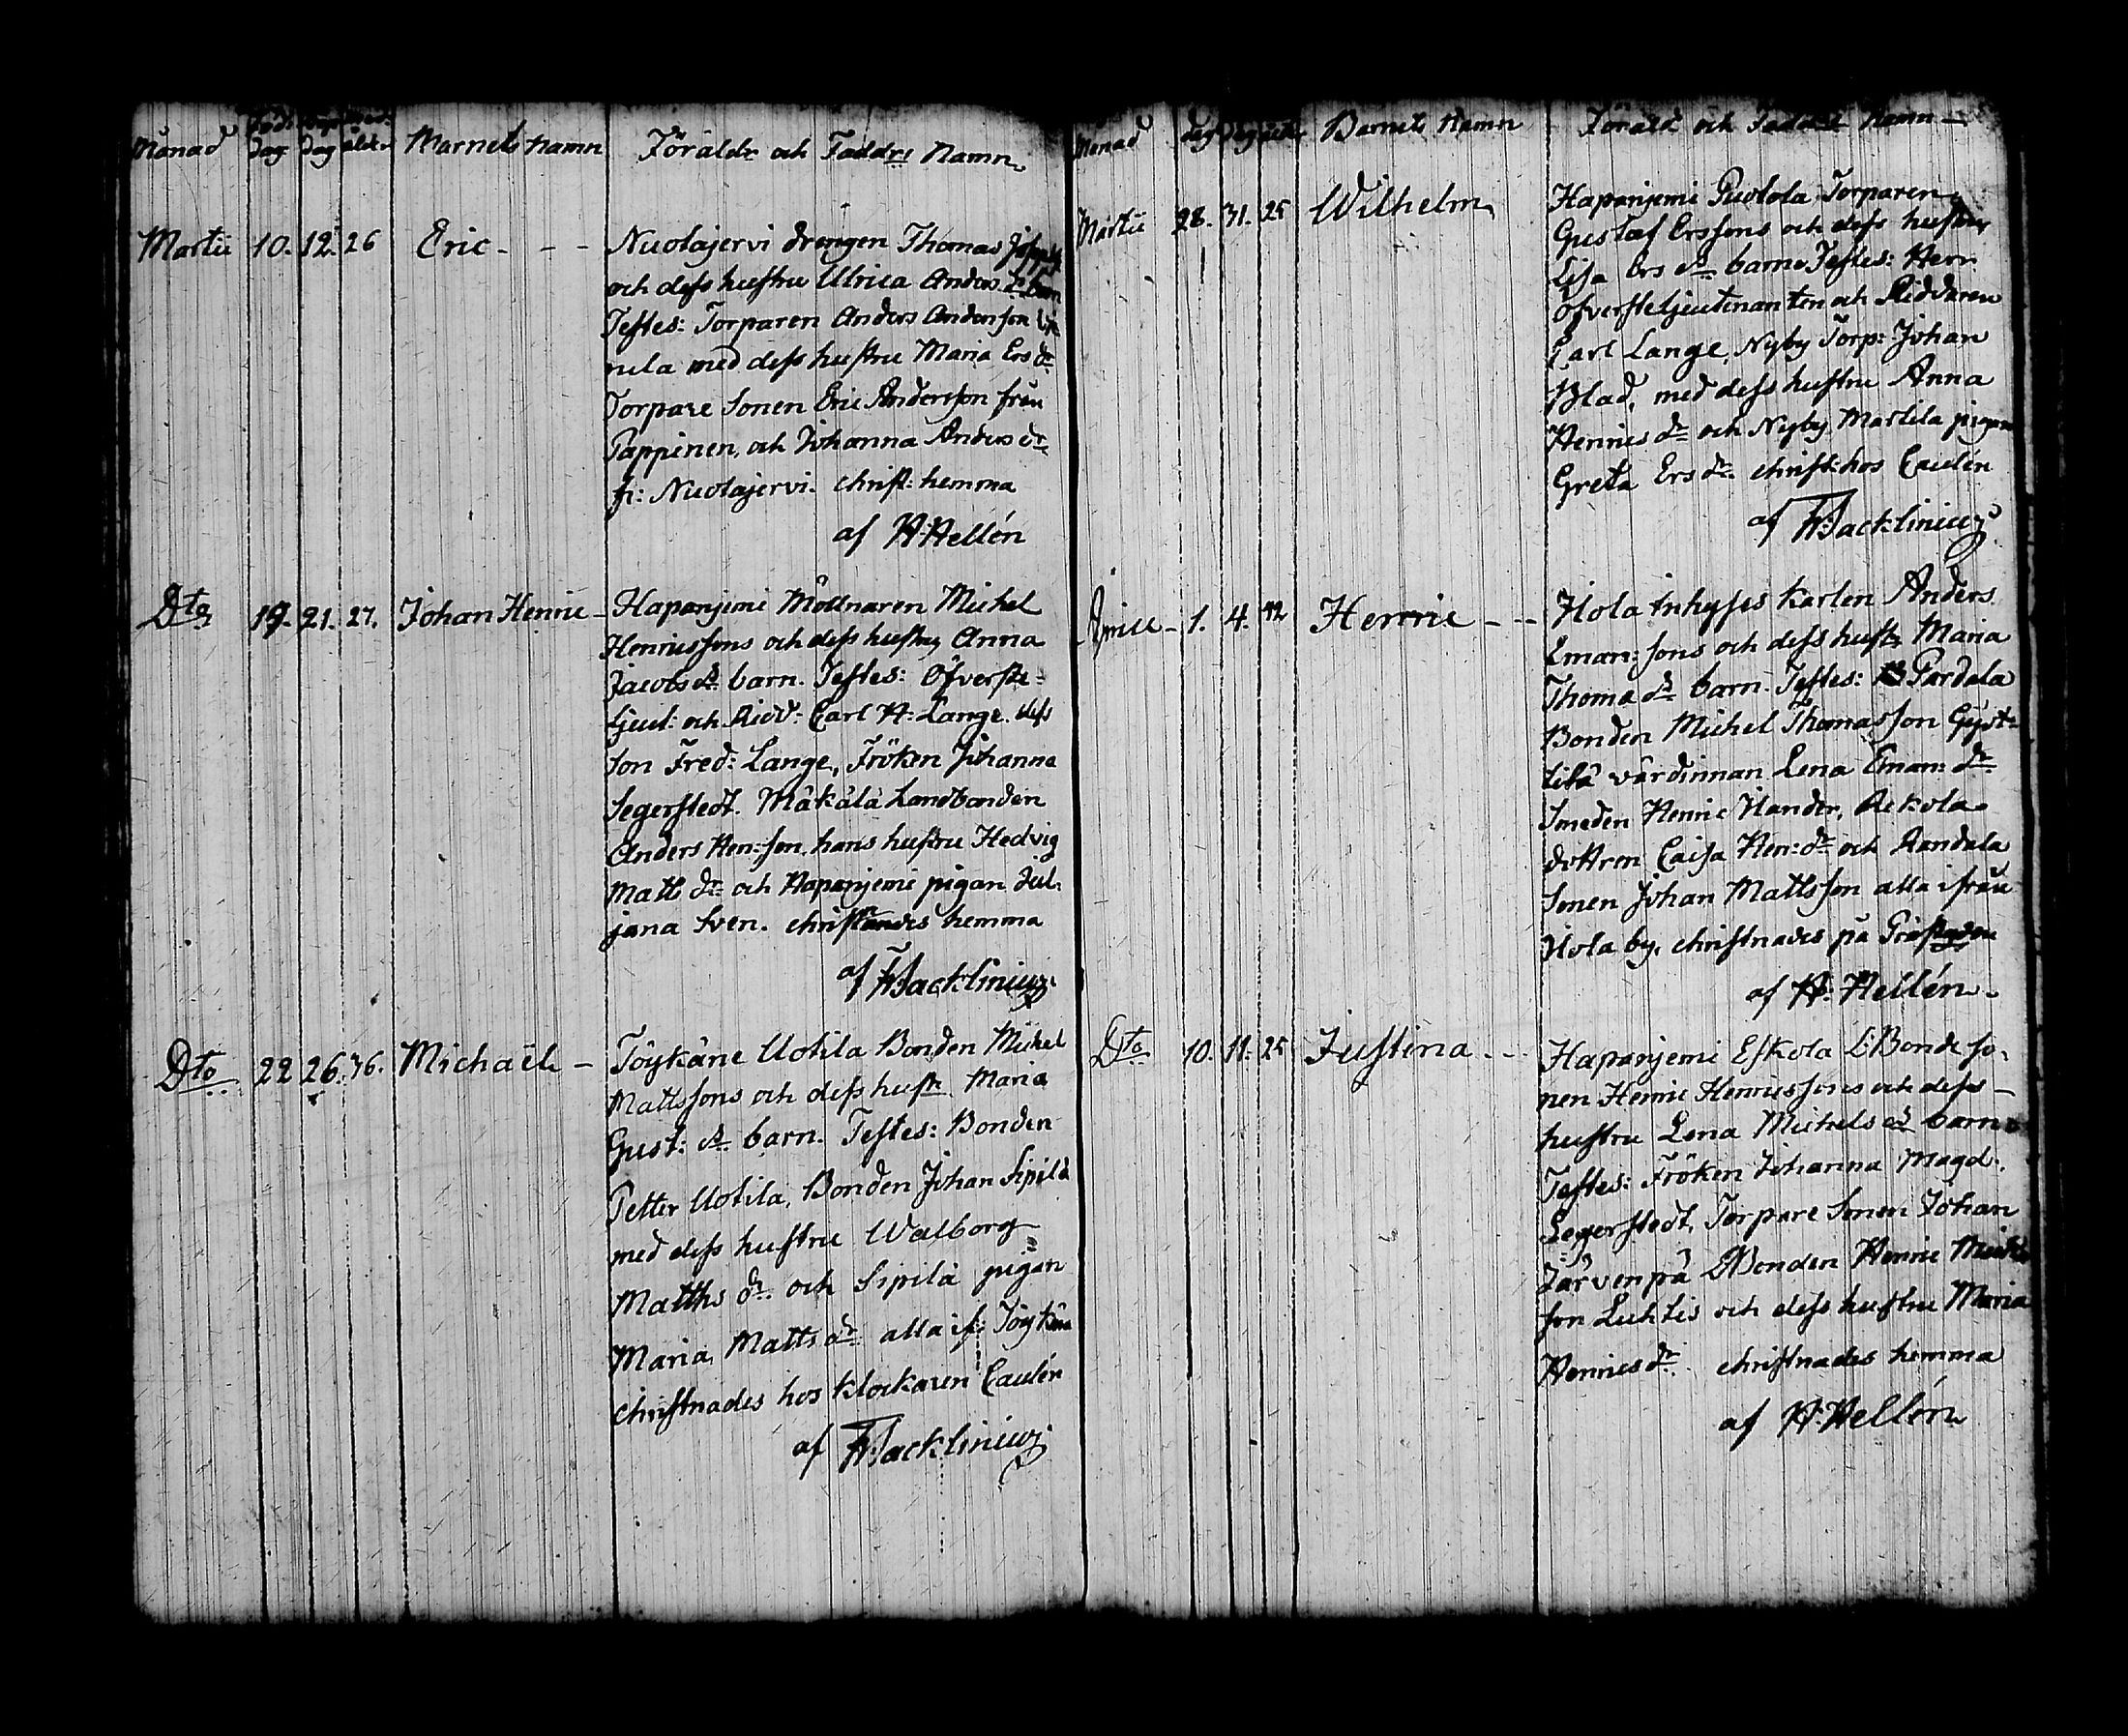 Månad Födt dag dag ålder Barnets namn Föräldr och Faddrs Namn
Martii 10. 12. 26 Eric - - - Nuolajervi drengen Thomas
och dess hustru Ulrica Anders dr barn
Testes: Torparen Anders Anderson
nela med dess hustru Maria Ers dr
Torpare Sonen Eric Andersson från
Pappinen, och Johanna Anders dr
fr: Nuolajervi. christ: hemma
af H. Hellén
Dto 19. 21. 27. Johan Henric - Hapanjemi Möllnaren Michel
Henricssons och dess hustru Anna
Jacobs dr barn. Testes: Öfverste-
ljeut: och Ridd: Carl H: Lange. dess
son Fred: Lange, Fröken Johanna
Segerstedt. Mäkälä Landbonden
Anders Hen:son, hans hustru Hedvig
Matts dr och Hapanjemi pigan Jul-
jana Sven. christnades hemma
af F Hacklinius
Dto 22 26. 36. Michaël - Töykäne Uotila Bonden Michel
Mattssons och dess hustr Maria
Gust: dr barn. Testes: Bonden
Petter Uotila, Bonden Johan Sipilä
med dess hustru Walborg
Matths dr. och Sipilä pigan
Maria Matts dr alla if: Töykäne
christnades hos klockaren Caulén
af F Hacklinius
Månad dag dag ålder Barnets Namn Föräld och Fadd Namn -
Martii 28. 31. 25 Wilhelm Hapanjemi Puolola Torparen
Gustaf Erssons och dess hustru
Lisa Ers dr barn Testes: Herr
Öfversteljeutenanten och Riddaren
Carl Lange, Nyby Torp: Johan
Blad, med dess hustru Anna
Henrics dr och Nyby Martila pigan
Greta Ers dr. christ: hos Caulén
af F Hacklinius
Aprill - 1. 4. 42 Henric - - Hola Inhyses Karlen Anders
Eman: sons och dess hustr Maria
Thoma dr barn. Testes: Pardala
Bonden Michel Thomasson Gyst-
tilä värdinnan Lena Eman: dr
Smeden Henric Hander, Rekola
dottren Caisa Hen: dr och Randala
Sonen Johan Mattsson alla ifrån
Hola by. christnades på Prästgården
af H. Hellén -
Dto 10. 11. 25 Justina - - Hapanjemi Eskola L:Bonde so-
nen Henric Henricssons och dess -
hustru Lena Michels dr barn
Testes: Fröken Johanna Magd:
Segerstedt, Torpare Sonen Johan
Järvenpä Bonden Henric
son Luhtis och dess hustru Maria
Henrics dr. christnades hemma
af H. Hellén